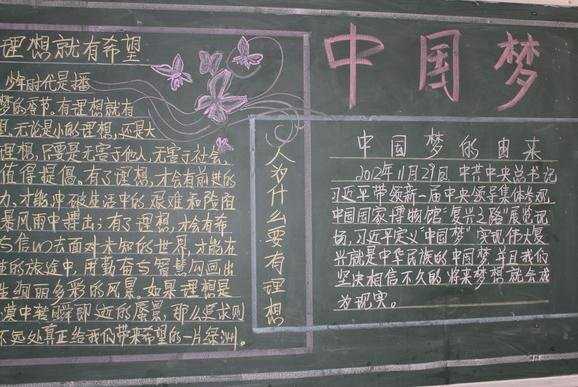 理想就有希望
少年时代是播
梦的季节。有理想就有
无论是小的理想,还是大
理想,只要是无害于他人,无害于社会,
值得提倡。有了理想,才会有前进的
力,才能冲破生活中的艰难和险阻
暴风雨中搏击;有了理想,才会有希
与信心去面对未知的世界,才能在
的旅途中,用勤奋与智慧勾画出
生绚丽多彩的风景。如果理想是
裳中转瞬即逝的
不远处真正给我们带来希望的一片绿洲。
人为什么要有理想
中国梦
中国梦的由来
2012年11月29日 中共中央总书记
习近平带领新一届中央领导集体参观
中国国家博物馆“复兴之路”展览现
场,习近平定义“中国梦”实现伟大复
兴就是中华民族的中国梦 并且我们
坚决相信不久的将来梦想就会成
为现实。